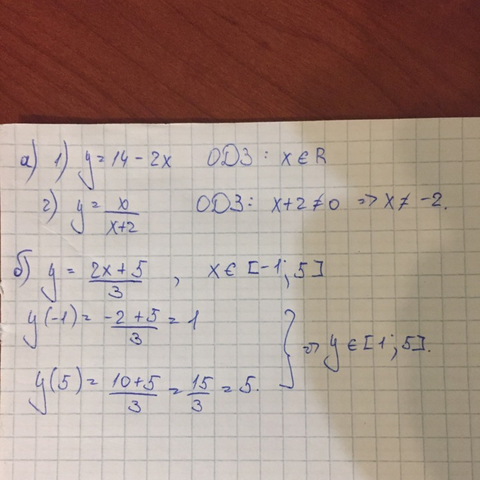 а) 1) y = 14 - 2x ОДЗ: x ∈ R
2) y = x/(x+2) ОДЗ: x+2 ≠ 0 => x ≠ -2.
б) y = (2x+5)/3, x ∈ [-1; 5]
y(-1) = (-2+5)/3 = 1
} => y ∈ [1; 5].
y(5) = (10+5)/3 = 15/3 = 5.